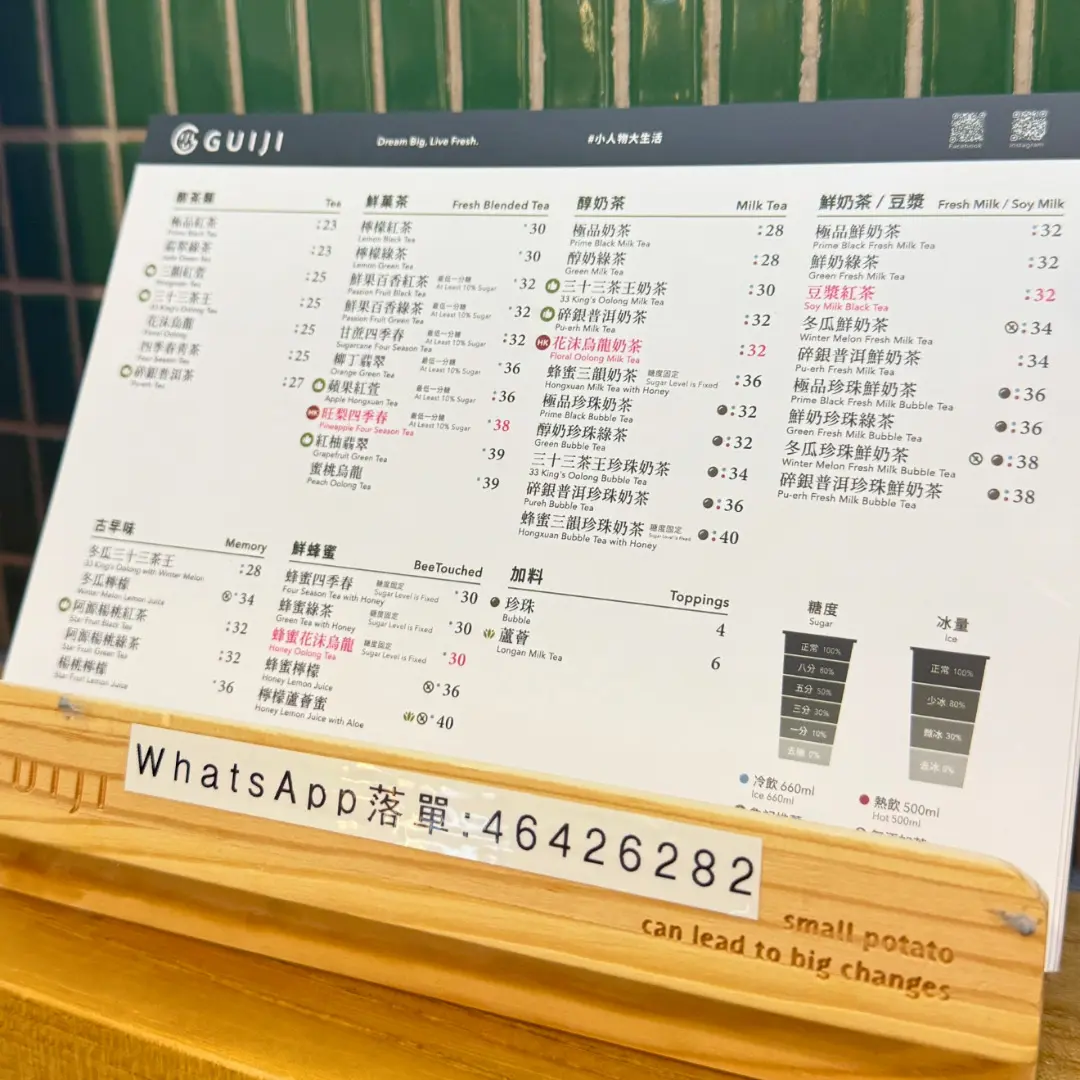 GUIJI
Dream Big, Live Fresh.
#小人物大生活
Facebook
Instagram
Tea
極品紅茶 :23
Prime Black Tea
翡翠綠茶 :23
三韻紅萱 :25
Hongxuan Tea
三十三茶王 :25
33 King's Oolong
花沫烏龍 :25
Floral Oolong
四季春青茶 :25
Four Season Tea
碎銀普洱茶 :27
Pu-erh Tea
鮮菓茶 Fresh Blended Tea
檸檬紅茶 30
Lemon Black Tea
檸檬綠茶 30
Lemon Green Tea
鮮果百香紅茶 最低一分糖 At Least 10% Sugar 32
Passion Fruit Black Tea
鮮果百香綠茶 最低一分糖 At Least 10% Sugar 32
Passion Fruit Green Tea
甘蔗四季春 最低一分糖 At Least 10% Sugar :32
Sugarcane Four Season Tea
柳丁翡翠 最低一分糖 At Least 10% Sugar 36
Orange Green Tea
蘋果紅萱 最低一分糖 At Least 10% Sugar :36
Apple Hongxuan Tea
HK 旺梨四季春 最低一分糖 At Least 10% Sugar 38
Pineapple Four Season Tea
紅柚翡翠 39
Grapefruit Green Tea
蜜桃烏龍 39
Peach Oolong Tea
醇奶茶 Milk Tea
極品奶茶 :28
Prime Black Milk Tea
醇奶綠茶 :28
Green Milk Tea
三十三茶王奶茶 :30
33 King's Oolong Milk Tea
碎銀普洱奶茶 :32
Pu-erh Milk Tea
HK 花沫烏龍奶茶 :32
Floral Oolong Milk Tea
蜂蜜三韻奶茶 糖度固定 Sugar Level is Fixed :36
Hongxuan Milk Tea with Honey
極品珍珠奶茶 :32
Prime Black Bubble Tea
醇奶珍珠綠茶 :32
Green Bubble Tea
三十三茶王珍珠奶茶 :34
33 King's Oolong Bubble Tea
碎銀普洱珍珠奶茶 :36
Pureh Bubble Tea
蜂蜜三韻珍珠奶茶 糖度固定 Sugar Level is Fixed :40
Hongxuan Bubble Tea with Honey
鮮奶茶 / 豆漿 Fresh Milk / Soy Milk
極品鮮奶茶 :32
Prime Black Fresh Milk Tea
鮮奶綠茶 :32
Green Fresh Milk Tea
豆漿紅茶 :32
Soy Milk Black Tea
冬瓜鮮奶茶 :34
Winter Melon Fresh Milk Tea
碎銀普洱鮮奶茶 :34
Pu-erh Fresh Milk Tea
極品珍珠鮮奶茶 :36
Prime Black Fresh Milk Bubble Tea
鮮奶珍珠綠茶 :36
Green Fresh Milk Bubble Tea
冬瓜珍珠鮮奶茶 :38
Winter Melon Fresh Milk Bubble Tea
碎銀普洱珍珠鮮奶茶 :38
Pu-erh Fresh Milk Bubble Tea
古早味 Memory
冬瓜三十三茶王 :28
33 King's Oolong with Winter Melon
冬瓜檸檬 34
Winter Melon Lemon Juice
阿源楊桃紅茶 :32
Star Fruit Black Tea
阿源楊桃綠茶 :32
Star Fruit Green Tea
楊桃檸檬 36
Star Fruit Lemon Juice
鮮蜂蜜 BeeTouched
蜂蜜四季春 糖度固定 Sugar Level is Fixed 30
Four Season Tea with Honey
蜂蜜綠茶 糖度固定 Sugar Level is Fixed 30
Green Tea with Honey
蜂蜜花沫烏龍 糖度固定 Sugar Level is Fixed 30
Honey Oolong Tea
蜂蜜檸檬 36
Honey Lemon Juice
檸檬蘆薈蜜 40
Honey Lemon Juice with Aloe
加料 Toppings
珍珠 4
Bubble
蘆薈 6
Longan Milk Tea
糖度
Sugar
正常 100%
八分 80%
五分 50%
三分 30%
一分 10%
去糖 0%
冰量
Ice
正常 100%
少冰 80%
微冰 30%
去冰 0%
冷飲 660ml
Ice 660ml
熱飲 500ml
Hot 500ml
WhatsApp落單:46426282
small potato
can lead to big changes